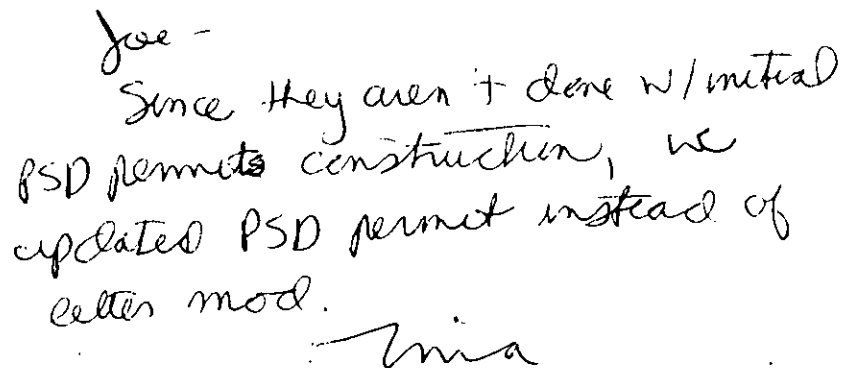 Joe -
Since they aren't done w/initial
PSD permits construction, we
updated PSD permit instead of
letter mod.